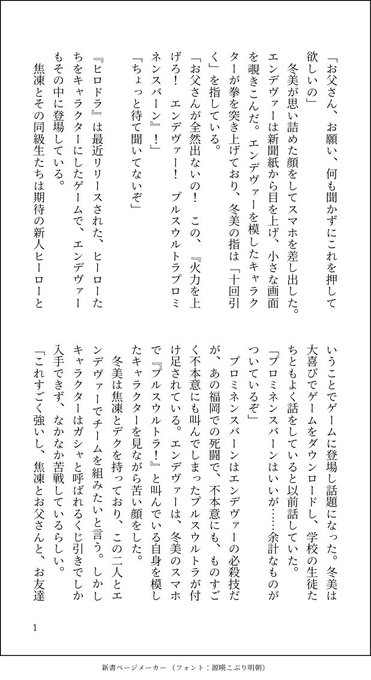 「お父さん、お願い、何も聞かずにこれを押して
欲しいの」
冬美が思い詰めた顔をしてスマホを差し出した。
エンデヴァーは新聞紙から目を上げ、小さな画面
を覗きこんだ。エンデヴァーを模したキャラク
ターが拳を突き上げており、冬美の指は「十回引
く」を指している。
「お父さんが全然出ないの！　この、『火力を上
げろ！　エンデヴァー！　プルスウルトラプロミ
ネンスバーン』！」
「ちょっと待て聞いてないぞ」
『ヒロドラ』は最近リリースされた、ヒーローた
ちをキャラクターにしたゲームで、エンデヴァー
もその中に登場している。
焦凍とその同級生たちは期待の新人ヒーローと
いうことでゲームに登場し話題になった。冬美は
大喜びでゲームをダウンロードし、学校の生徒た
ちともよく話をしていると以前話していた。
「プロミネンスバーンはいいが……余計なものが
ついているぞ」
プロミネンスバーンはエンデヴァーの必殺技だ
が、あの福岡での死闘で、不本意にも、ものすご
く不本意にも叫んでしまったプルスウルトラが付
け足されている。エンデヴァーは、冬美のスマホ
で『プルスウルトラ！』と叫んでいる自身を模し
たキャラクターを見ながら苦い顔をした。
冬美は焦凍とデクを持っており、この二人とエ
ンデヴァーでチームを組みたいと言う。しかし
キャラクターはガシャと呼ばれるくじ引きでしか
入手できず、なかなか苦戦しているらしい。
「これすごく強いし、焦凍とお父さんと、お友達
1
新書ページメーカー（フォント：源暎こぶり明朝）